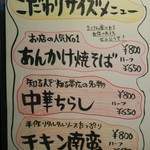 こだわりサイズメニュー
お店の人気No.1
あんかけ焼そば
¥800
ハーフ
¥650
知る人ぞ知る帯広の名物
中華ちらし
¥800
ハーフ
¥650
手作りタルタルソースたっぷり
チキン南蛮
¥800
ハーフ